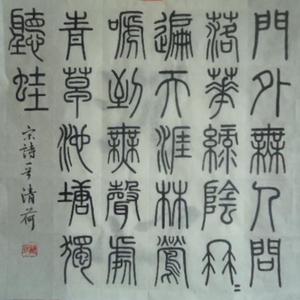 門外無人問
落華綠陰冉〻
遍天涯林鶯
嗁到無聲處
青草池塘獨
聽蛙
宋詩一首清荷